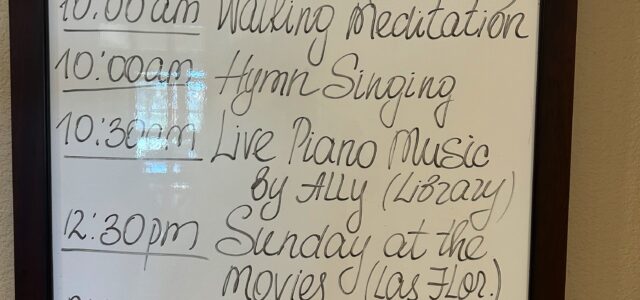 10:00am Walking Meditation
10:00am Hymn Singing
10:30am Live Piano Music
By Ally (Library)
12:30pm Sunday at the
Movies (Las Flor.)